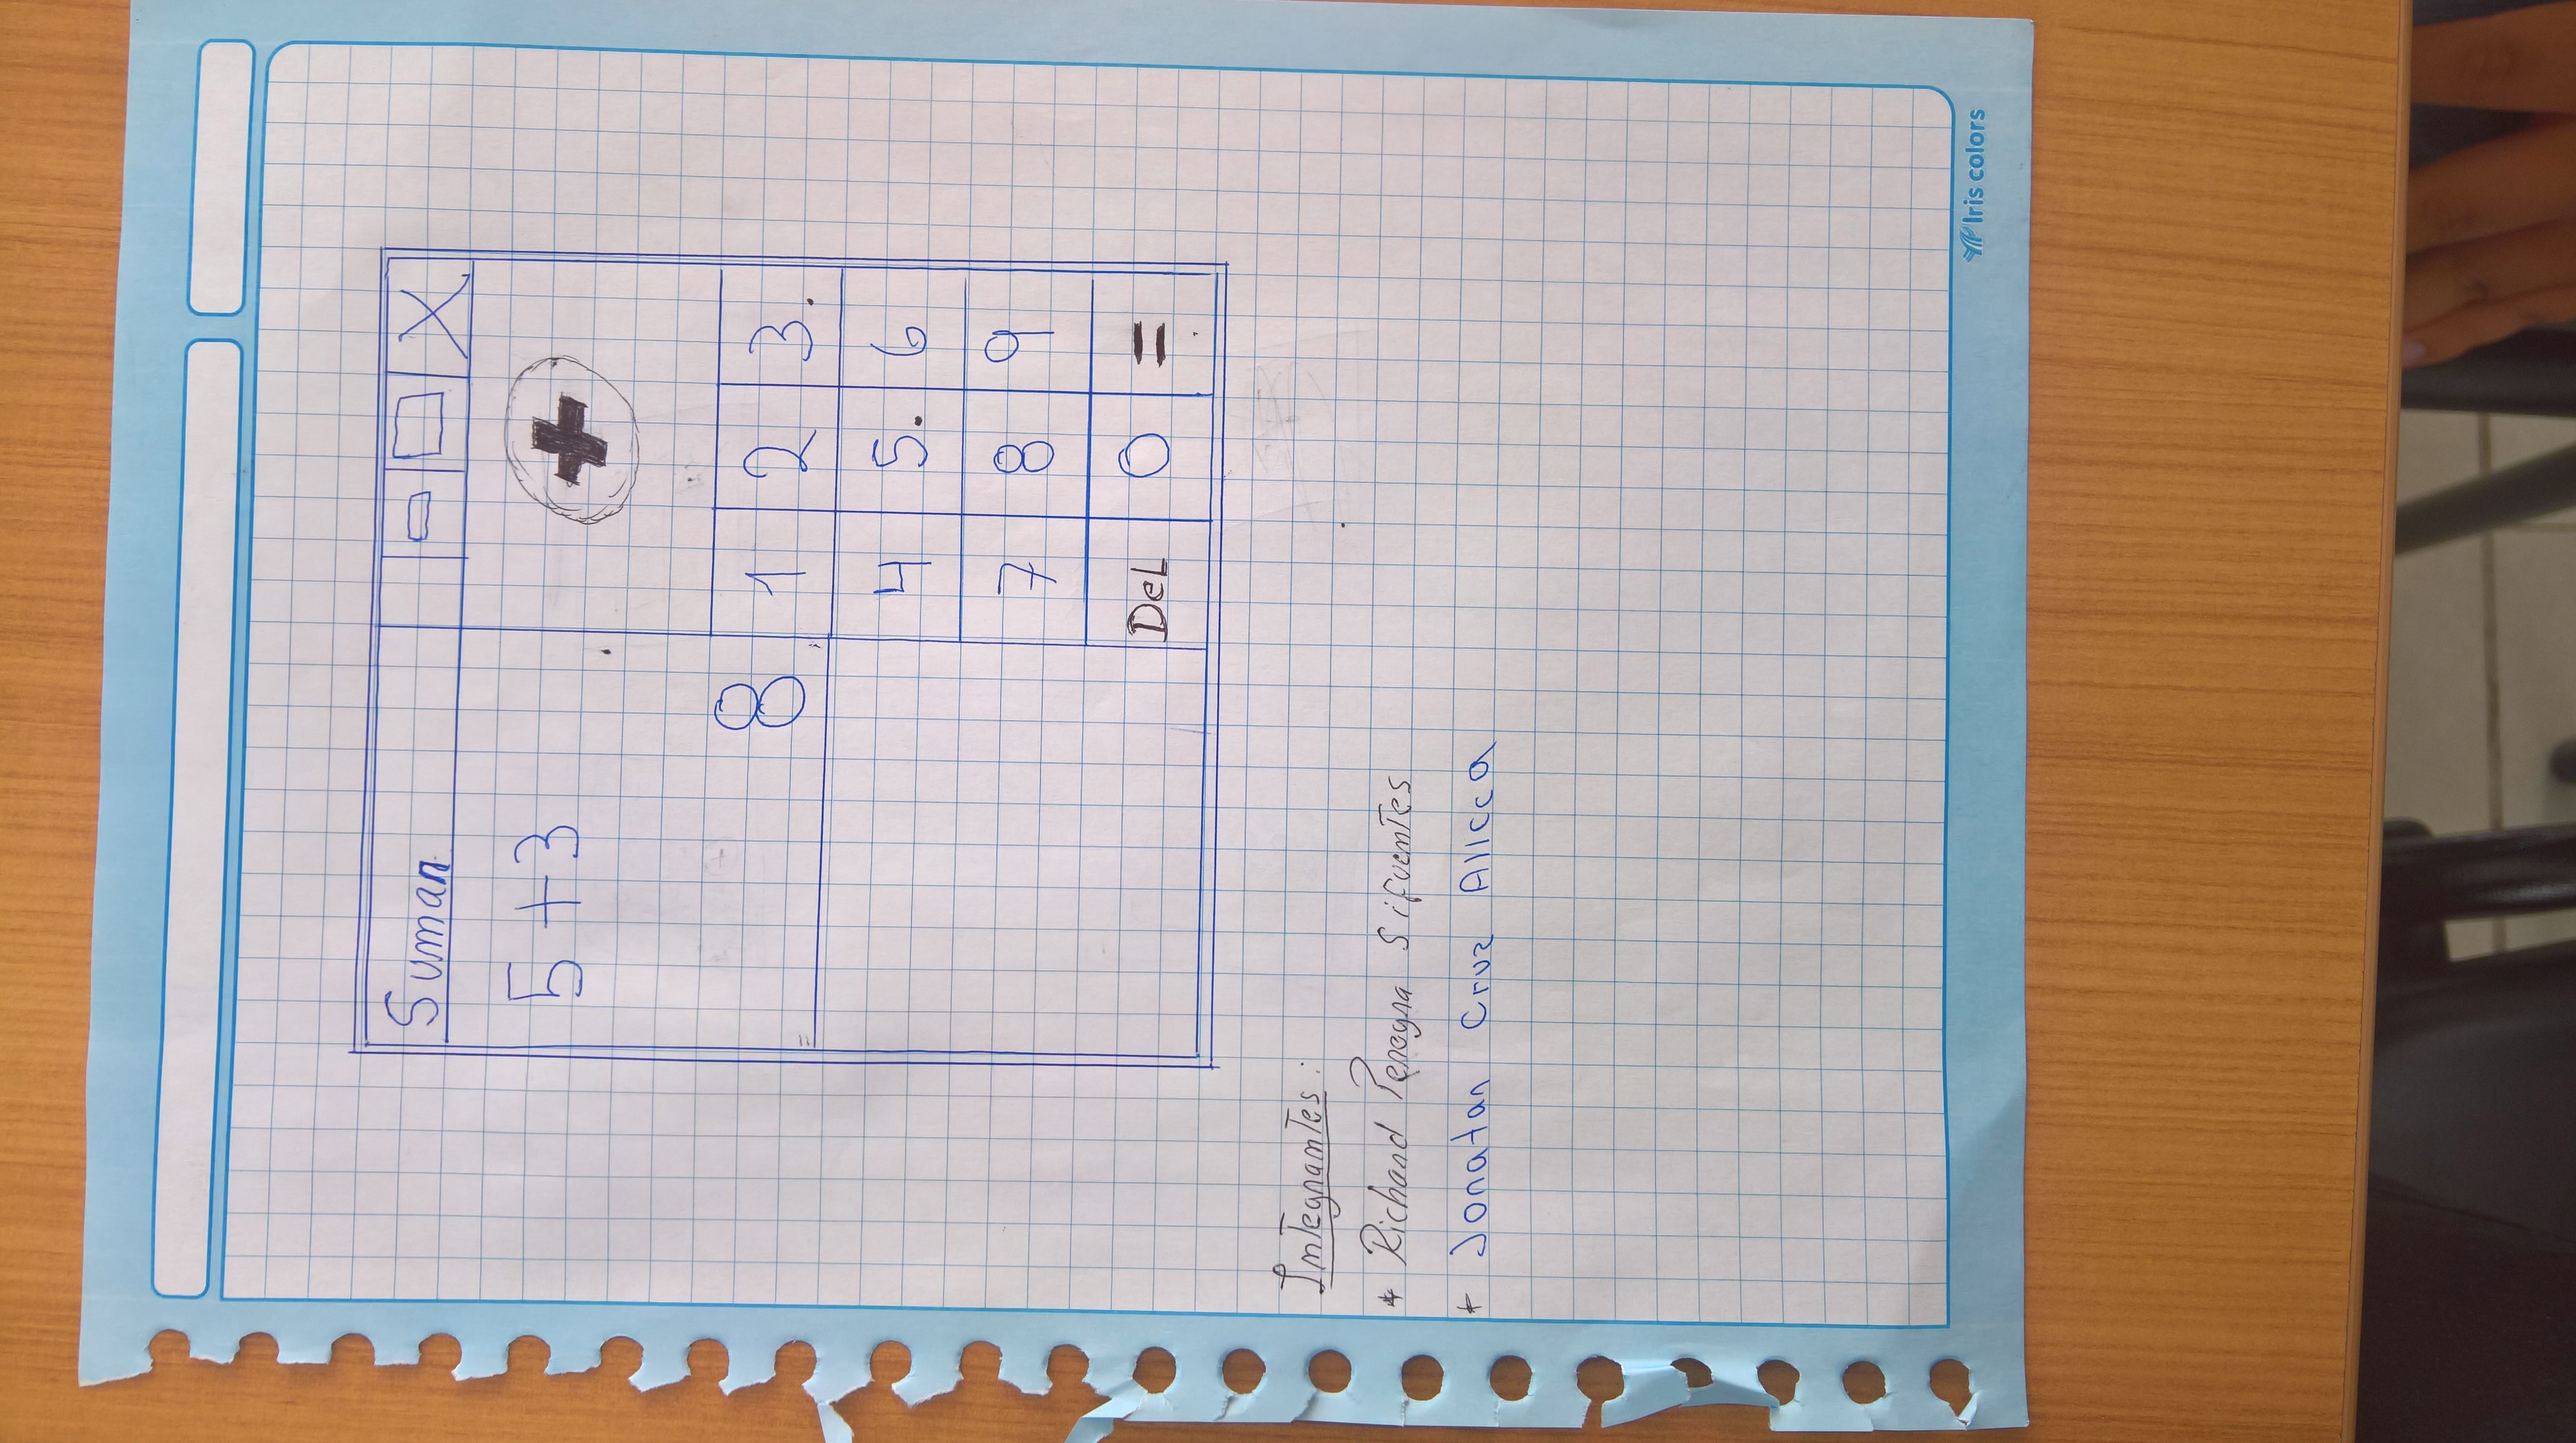 Sumar
X
5 + 3
+
8
1 2 3.
4 5. 6
7 8 9
DeL 0 =
Integrantes:
* Richard Sifuentes
* Jonatan Cruz Allcca
Iris colors